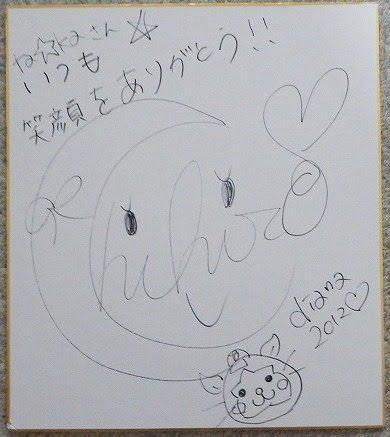 さん☆
いつも
笑顔をありがとう!!
Chihiro
diana
2012♡